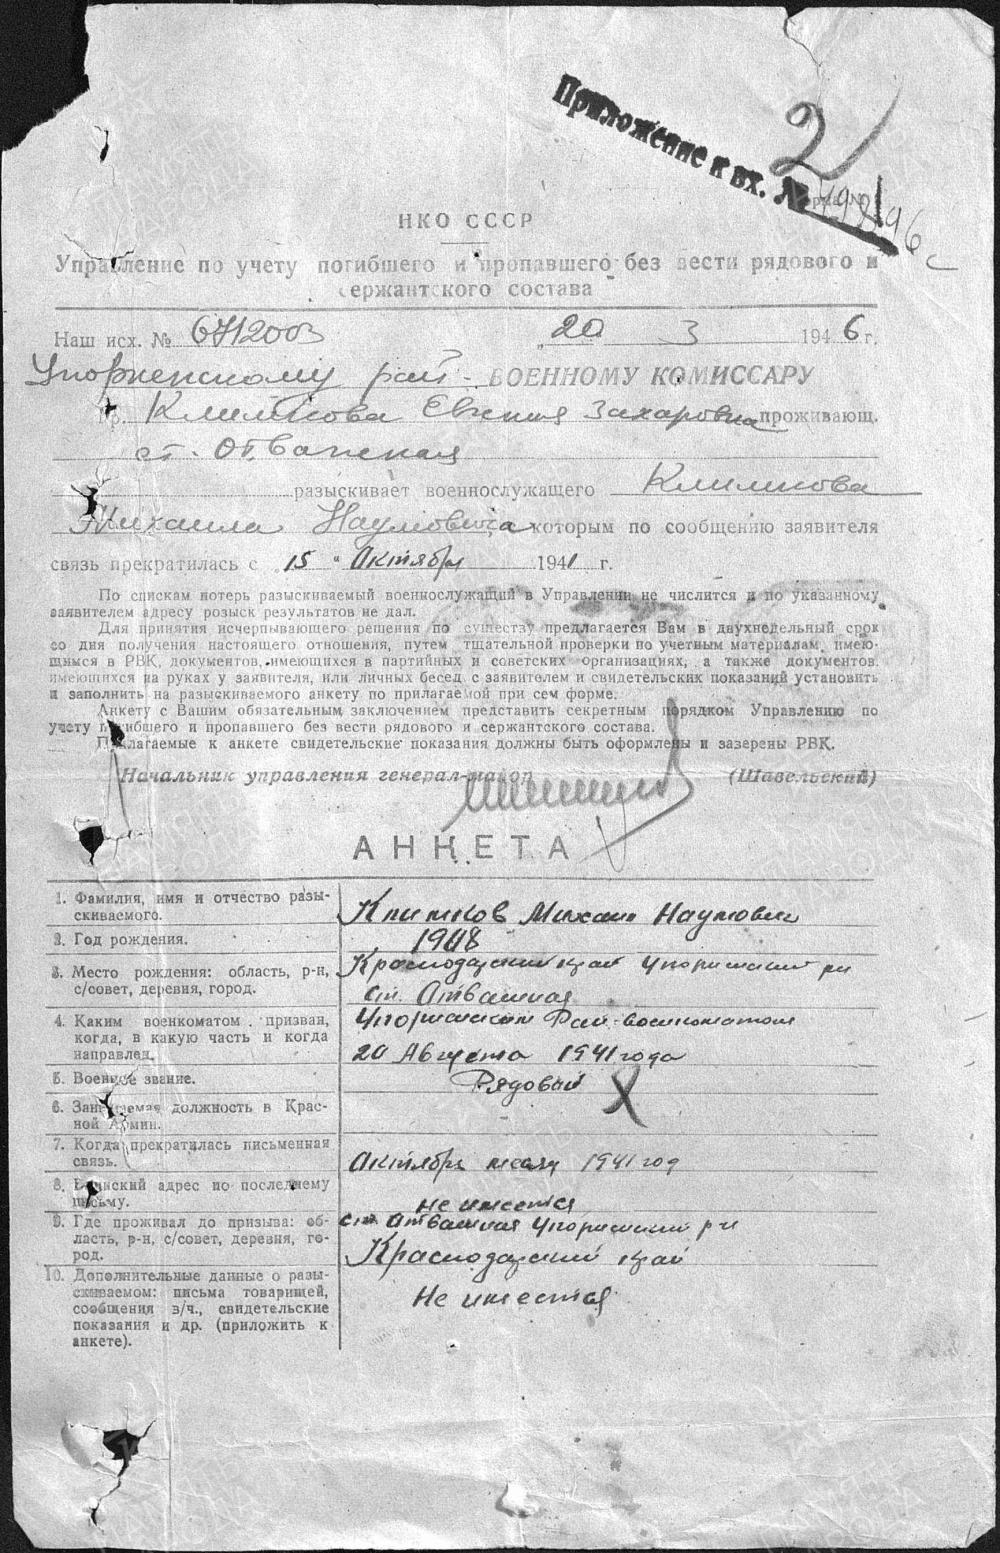 Приложение к вх. №
2
НКО СССР
Управление по учету погибшего и пропавшего без вести рядового и
сержантского состава
Наш исх. № 6712003 „20 3 1946 г.
Упорненскому рай- ВОЕННОМУ КОМИССАРУ
Гр. Климкова Евгения Захаровна проживающ.
ст. Отважная
разыскивает военнослужащего Климкова
Михаила Наумовича которым по сообщению заявителя
связь прекратилась с 15 " Октября 1941 г.
По спискам потерь разыскиваемый военнослужащий в Управлении не числится и по указанному
заявителем адресу розыск результатов не дал.
Для принятия исчерпывающего решения по существу предлагается Вам в двухнедельный срок
со дня получения настоящего отношения, путем тщательной проверки по учетным материалам, имею-
щимся в РВК, документов, имеющихся в партийных и советских организациях, а также документов,
имеющихся на руках у заявителя, или личных бесед с заявителем и свидетельских показаний установить
и заполнить на разыскиваемого анкету по прилагаемой при сем форме.
Анкету с Вашим обязательным заключением представить секретным порядком Управлению по
учету погибшего и пропавшего без вести рядового и сержантского состава.
Прилагаемые к анкете свидетельские показания должны быть оформлены и заверены РВК.
Начальник управления генерал-майор (Шавельский)
АНКЕТА
1. Фамилия, имя и отчество разы-
скиваемого.
Климков Михаил Наумович
2. Год рождения.
1908
3. Место рождения: область, р-н,
с/совет, деревня, город.
Краснодарский край Упорненский р-н
ст. Отважная
4. Каким военкоматом призван,
когда, в какую часть и когда
направлен.
Упорненским Рай-военкоматом
20 Августа 1941 года
5. Военное звание.
Рядовый
6. Занимаемая должность в Крас-
ной Армии.
7. Когда прекратилась письменная
связь.
Октябрь месяц 1941 год
8. Воинский адрес по последнему
письму.
Не имеется
9. Где проживал до призыва: об-
ласть, р-н, с/совет, деревня, го-
род.
ст. Отважная Упорненский р-н
Краснодарский край
10. Дополнительные данные о разы-
скиваемом: письма товарищей,
сообщения в/ч., свидетельские
показания и др. (приложить к
анкете).
Не имеется